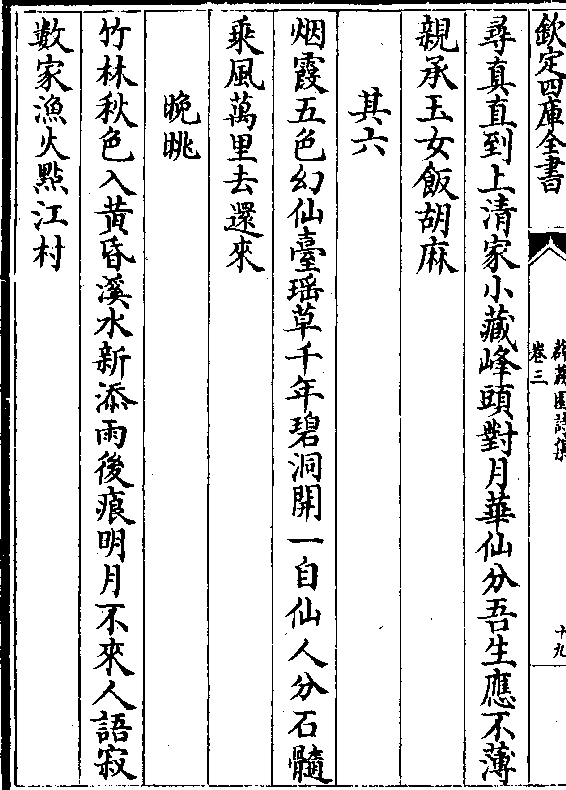 欽定四庫全書
卷三
十九
尋真直到上清家小藏峰頭對月華仙分吾生應不薄
親承玉女飯胡麻
其六
烟霞五色幻仙臺瑶草千年碧洞開一自仙人分石髓
乘風萬里去還來
晚眺
竹林秋色入黄昏溪水新添雨後痕明月不來人語寂
數家漁火點江村